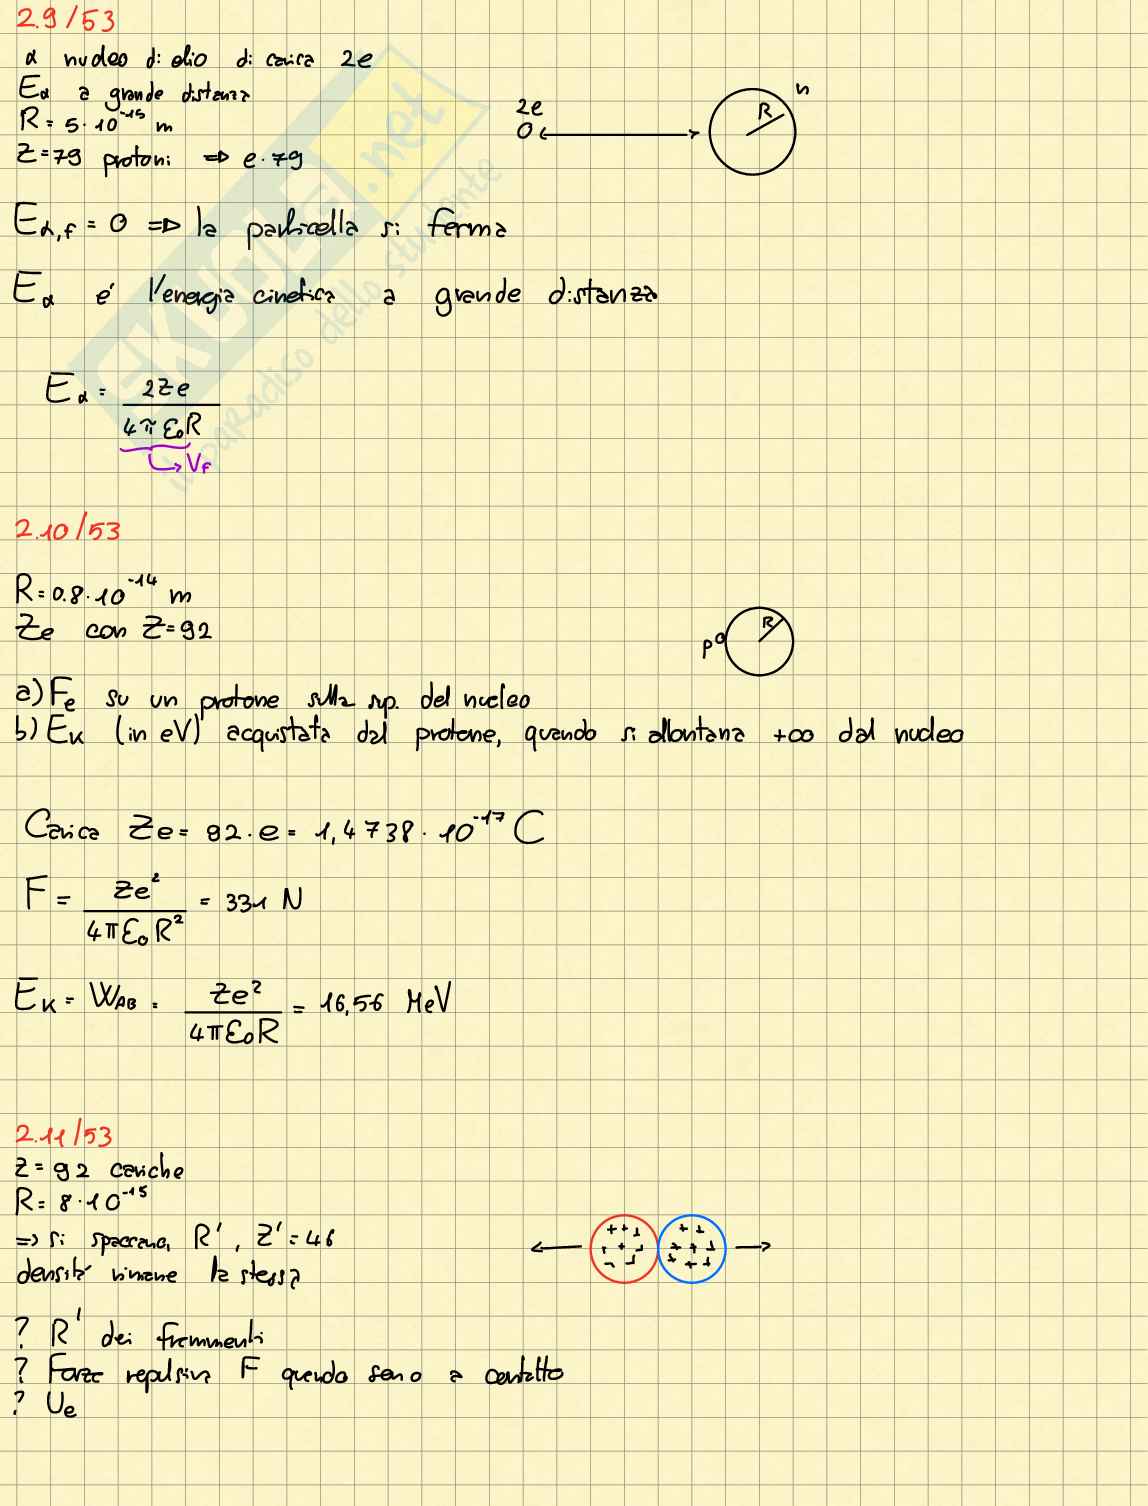 2.9/53
α nucleo di elio di carica 2e
Eα a grande distanza
R = 5·10^-15 m
Z=79 protoni => e·79
2e
R
n
Eα,f = 0 => la particella si ferma
Eα e' l'energia cinetica a grande distanza
Eα = 2Ze / 4πε₀R
↳ Vf
2.10/53
R=0.8·10^-14 m
Ze con Z=92
p
R
a) Fe su un protone sulla sup. del nucleo
b) Ek (in eV) acquistata dal protone, quando si allontana +∞ dal nucleo
Carica Ze = 92·e = 1,4738·10^-17 C
F = Ze² / 4πε₀R² = 331 N
Ek = W_AB = Ze² / 4πε₀R = 16,56 MeV
2.11/53
Z=92 cariche
R = 8·10^-15
=> si spaccano, R', Z'=46
densità rimane la stessa
? R' dei frammenti
? Forza repulsiva F quando sono a contatto
? Ue
SKUOLA.net
il paradiso dello studente